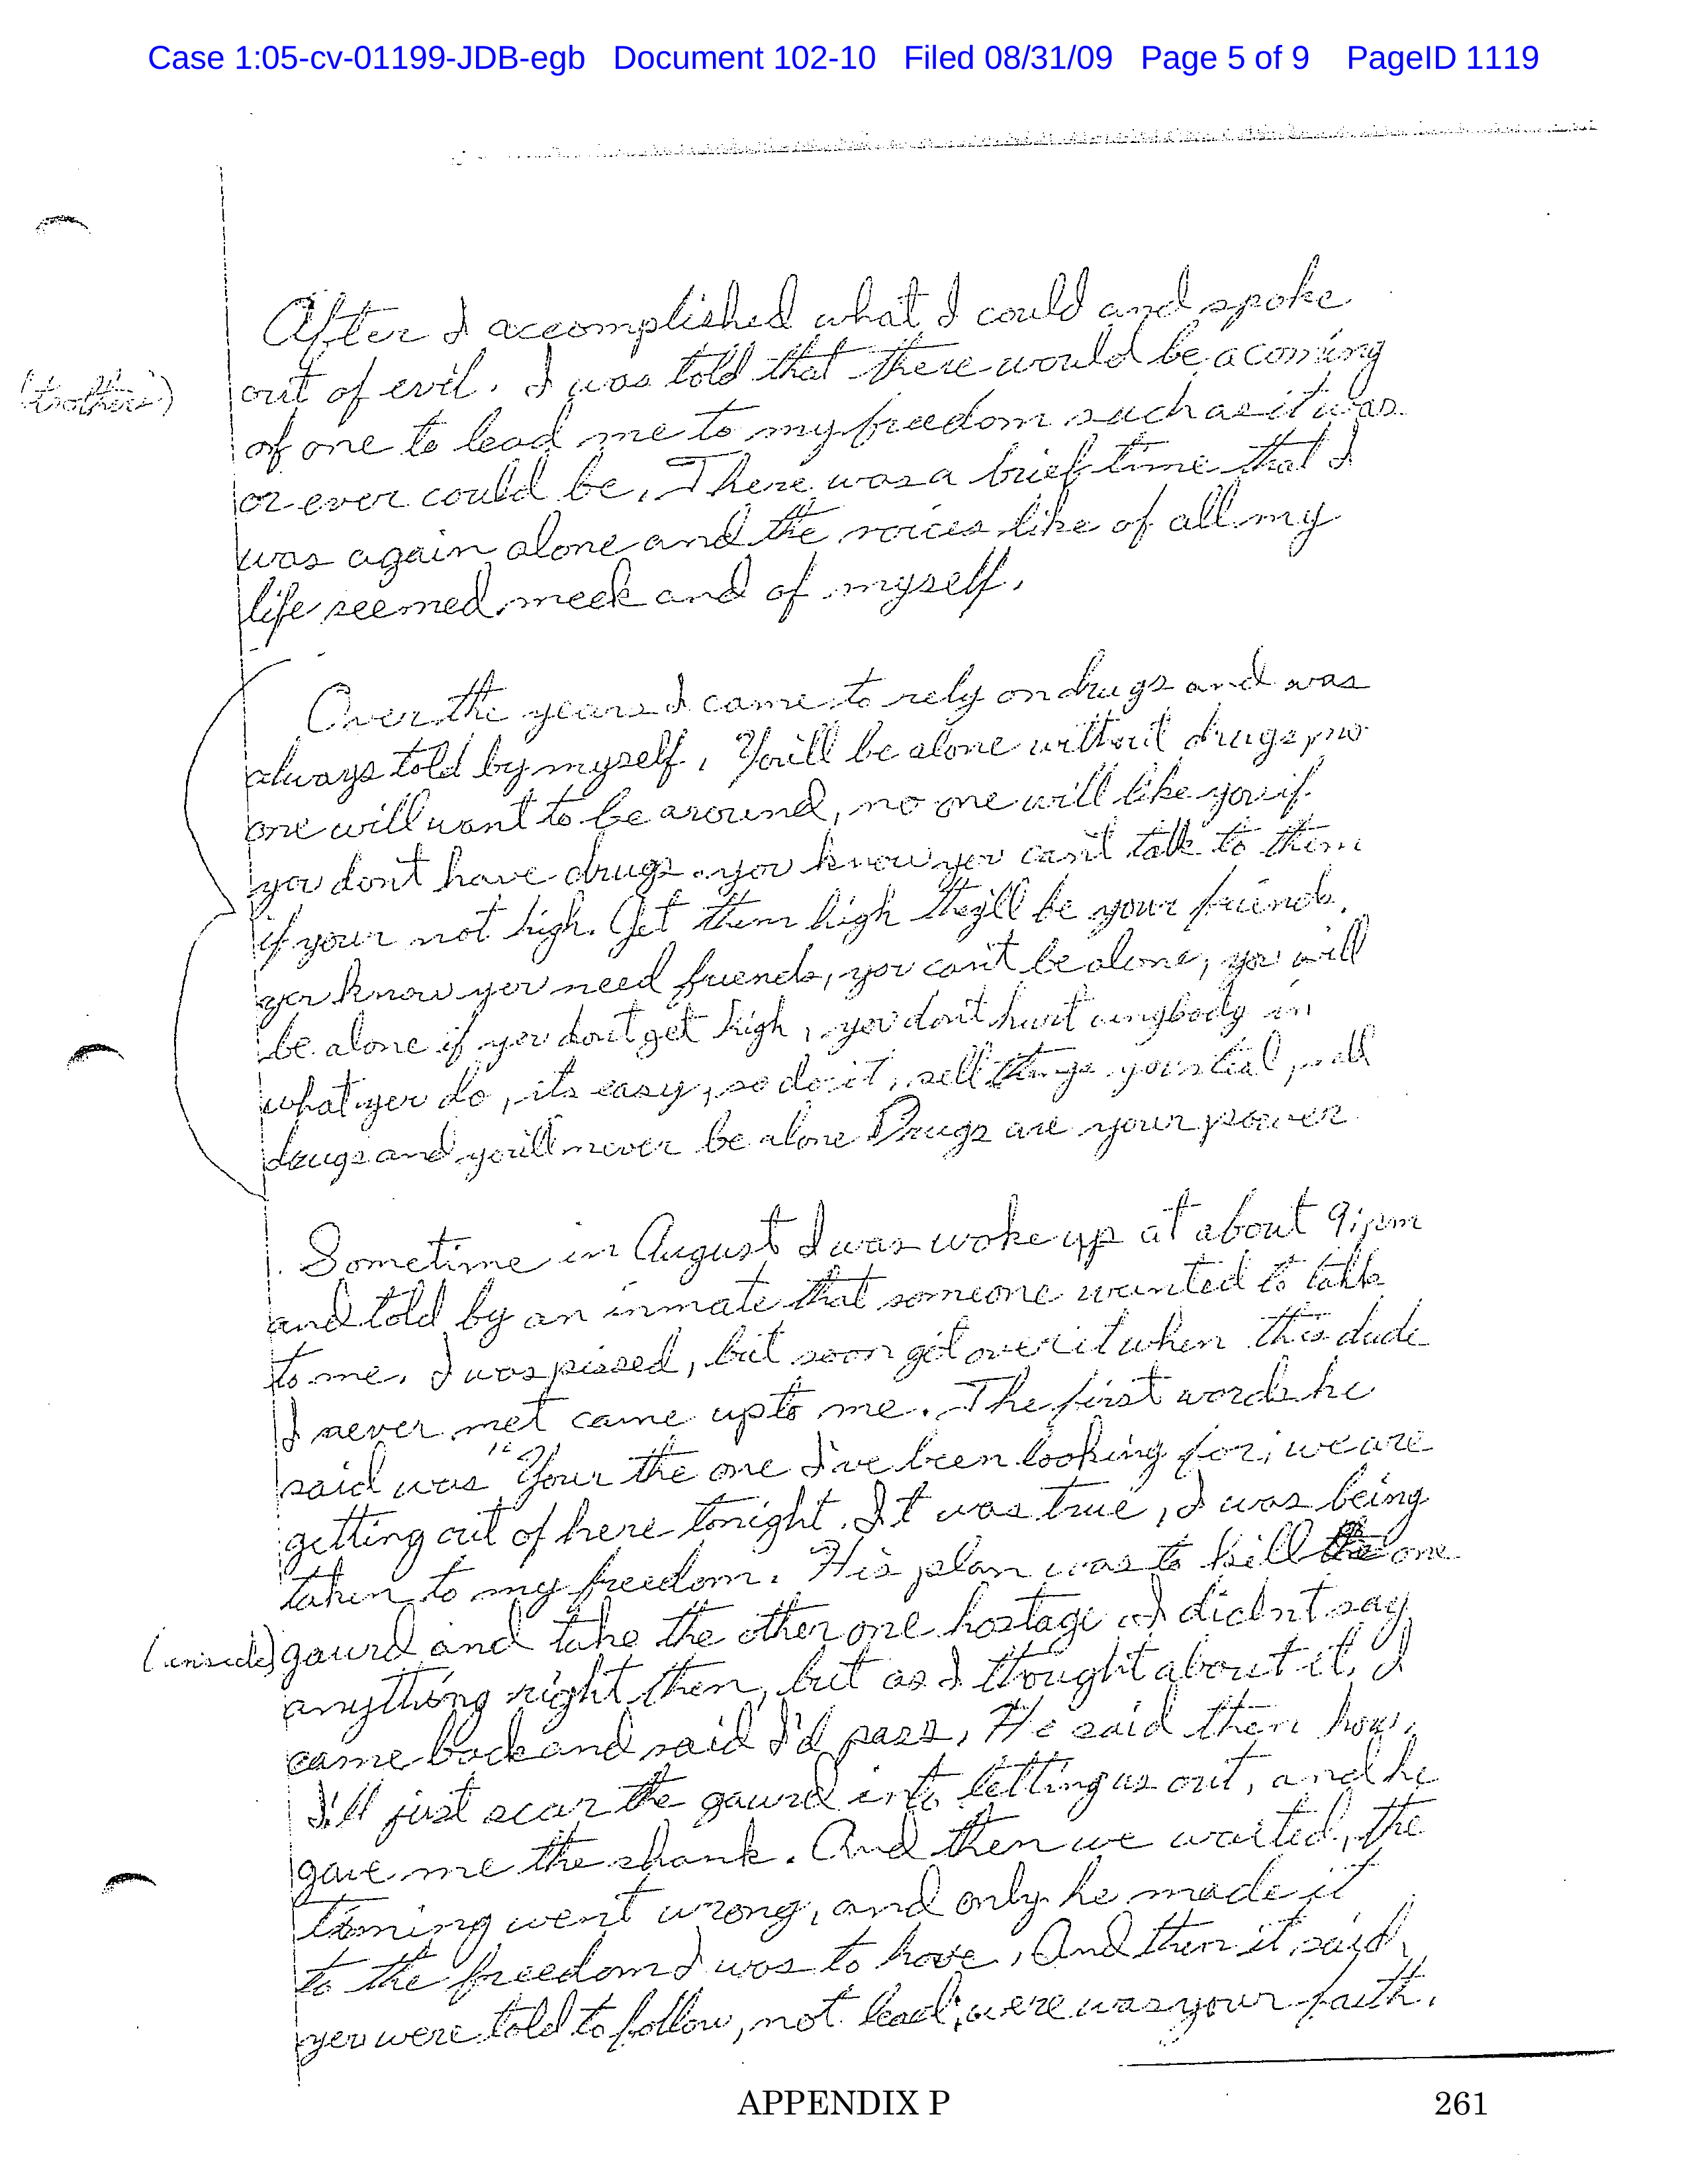 Case 1:05-cv-01199-JDB-egb Document 102-10 Filed 08/31/09 Page 5 of 9 PageID 1119
After I accomplished what I could and spoke
out of evil. I was told that there would be a coming
of one to lead me to my freedom such as it was
or ever could be. There was a brief time that I
was again alone and the voices like of all my
life seemed meek and of myself.
Over the years I came to rely on drugs and was
always told by myself, You'll be alone without drugs, no
one will want to be around, no one will like you if
you don't have drugs. you know you can't talk to them
if your not high. Get them high they'll be your friends.
you know you need friends, you can't be alone, you will
be alone if you don't get high, you don't hurt anybody in
what you do, its easy, so do it, sell things you steal, sell
drugs and you'll never be alone Drugs are your power
Sometime in August I was woke up at about 9:pm
and told by an inmate that someone wanted to talk
to me. I was pissed, but soon got over it when this dude
I never met came up to me. The first words he
said was "Your the one I've been looking for, we are
getting out of here tonight. It was true, I was being
taken to my freedom. His plan was to kill one
(inside) gaurd and take the other one hostage I didn't say
anything right then, but as I thought about it, I
came back and said I'd pass. He said then how,
I'll just scar the gaurd into letting us out, and he
gave me the shank. And then we waited, the
timing went wrong, and only he made it
to the freedom I was to have. And then it said
you were told to follow, not lead, were was your faith.
APPENDIX P 261